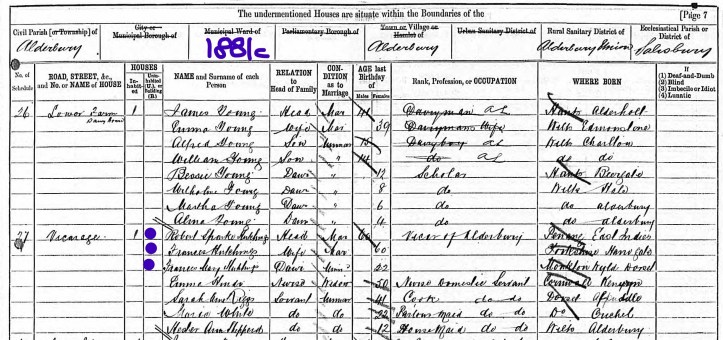 The undermentioned Houses are situate within the Boundaries of the [Page 7
Civil Parish [or Township] of Alderbury
City or Municipal Borough of
Municipal Ward of
1881c
Parliamentary Borough of
Town or Village or Hamlet of Alderbury
Urban Sanitary District of
Rural Sanitary District of Alderbury Union
Ecclesiastical Parish or District of Salisbury
No. of Schedule
ROAD, STREET, &c., and No. or NAME of HOUSE
HOUSES Inhabited Uninhabited (U.), or Building (B.)
NAME and Surname of each Person
RELATION to Head of Family
CONDITION as to Marriage
AGE last Birthday of Males Females
Rank, Profession, or OCCUPATION
WHERE BORN
If (1) Deaf-and-Dumb (2) Blind (3) Imbecile or Idiot (4) Lunatic
26 Lower Farm 1 James Young Head Mar 41 Dairyman Hants Alderholt
Dairy House
Emma Young Wife Mar 39 Dairymans Wife Wilts
Alfred Young Son Unmar Dairyboy Wilts Charlton
William Young Son " 14 do do do
Bessie Young Daur " 12 Scholar Hants Burgate
Wilhelmina Young Daur " 8 do Wilts Hale
Martha Young Daur " 6 do do Alderbury
Alma Young Daur 4 do do Alderbury
27 Vicarage 1 Robert Sparke Hutchings Head Mar Vicar of Alderbury Penang East Indies
Frances Hutchings Wife Mar 60 Yorkshire Harrogate
Frances Mary Hutchings Daur 22 Monkton Wyld Dorset
Emma Nurse Widow 50 Nurse Domestic Servant Cornwall Kenwyn
Sarah Ann Riggs Servant Unmar 41 Cook do do Dorset Affpuddle
Maria White do do 22 Parlour Maid do do Do Crichel
Hester Ann Shepherd do do 12 House Maid do do Wilts Alderbury